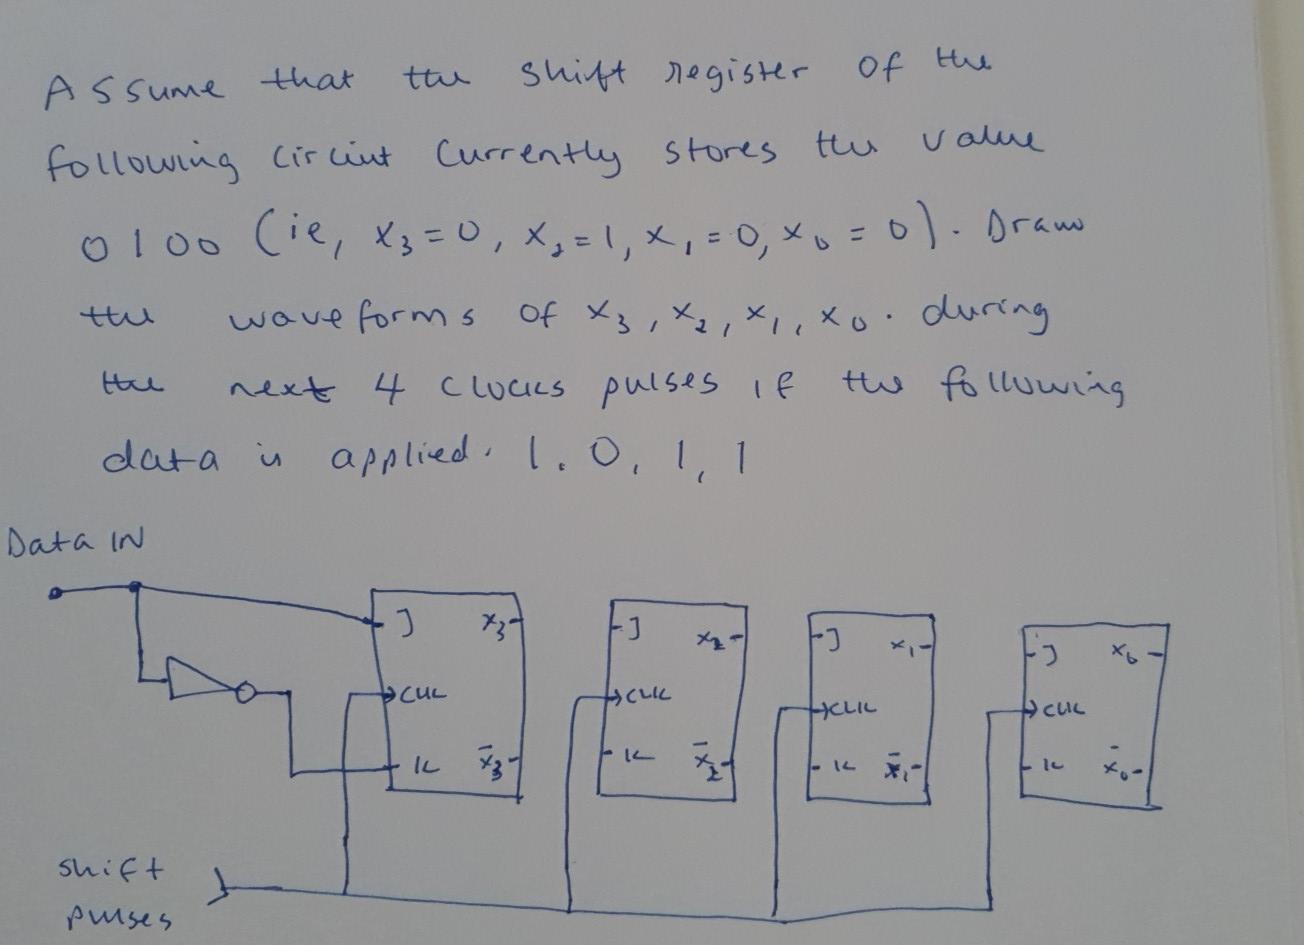 Assume that the shift register of the
following circuit currently stores the value
0100 (ie, x₃ = 0, x₂ = 1, x₁ = 0, x₀ = 0). Draw
the waveforms of x₃, x₂, x₁, x₀. during
the next 4 clocks pulses if the following
data is applied. 1. 0, 1, 1
Data IN
J x₃ J x₂ J x₁ J x₀
CLK CLK CLK CLK
K x̄₃ K x̄₂ K x̄₁ K x̄₀
shift
pulses